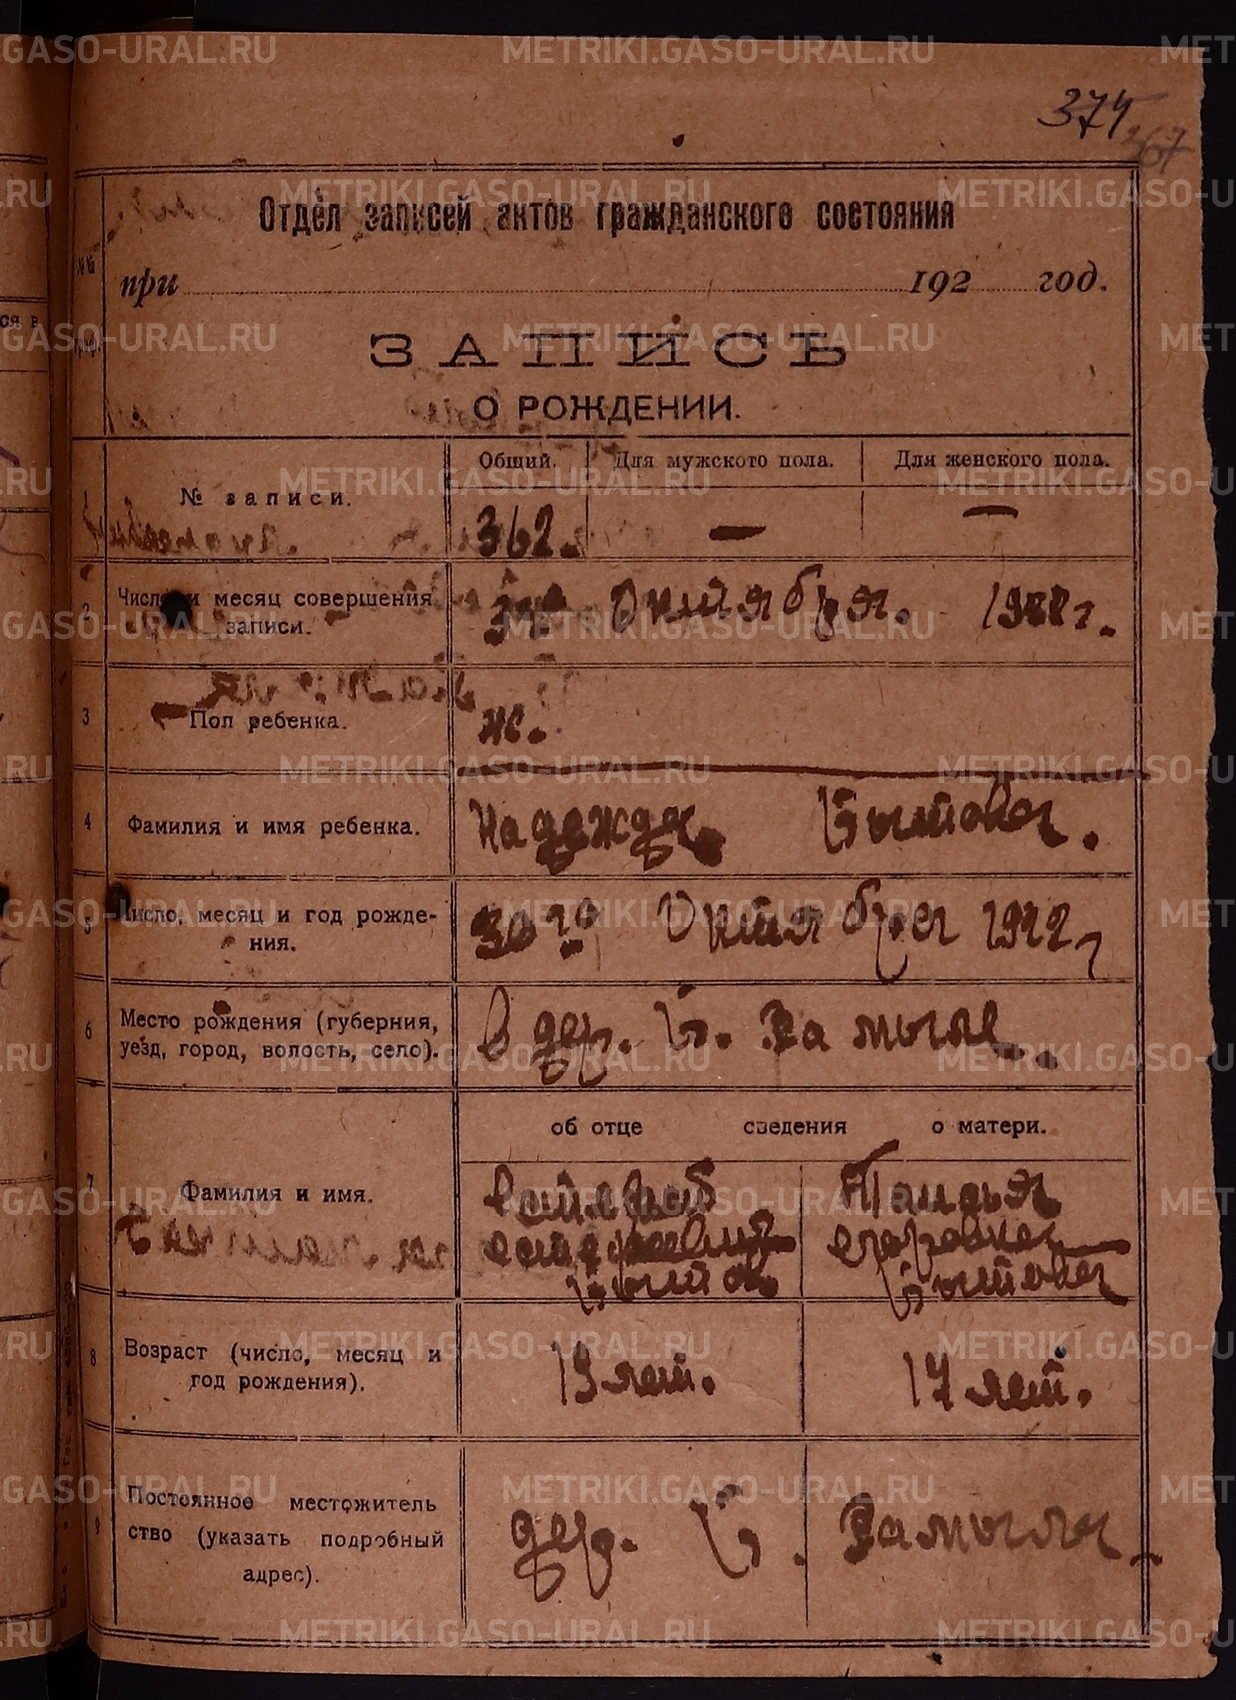 374
367
Отдел записей актов гражданского состояния
№№ граф.
при 192 год.
ЗАПИСЬ
О РОЖДЕНИИ.
Общий. Для мужского пола. Для женского пола.
1 № записи. 362. — —
2 Число и месяц совершения записи. Октября. 1922 г.
3 Пол ребенка. ж.
4 Фамилия и имя ребенка. Надежда Бытова.
5 Число, месяц и год рождения. 30го Октября 1922 г
6 Место рождения (губерния, уезд, город, волость, село). В дер. Б. Замысле.
об отце сведения о матери.
7 Фамилия и имя.
Бытов
Бытова
8 Возраст (число, месяц и год рождения). 19 лет. 17 лет.
9 Постоянное местожитель
ство (указать подробный
адрес). дер. Б.
METRIKI.GASO-URAL.RU